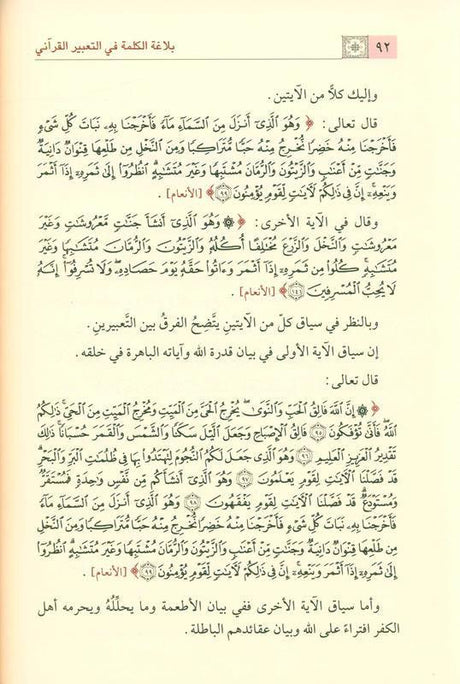 ٩٢ بلاغة الكلمة في التعبير القرآني
وإليك كلاًّ من الآيتين.
قال تعالى: ﴿ وَهُوَ ٱلَّذِىٓ أَنزَلَ مِنَ ٱلسَّمَآءِ مَآءً فَأَخْرَجْنَا بِهِۦ نَبَاتَ كُلِّ شَىْءٍ
فَأَخْرَجْنَا مِنْهُ خَضِرًا نُّخْرِجُ مِنْهُ حَبًّا مُّتَرَاكِبًا وَمِنَ ٱلنَّخْلِ مِن طَلْعِهَا قِنْوَانٌ دَانِيَةٌ
وَجَنَّٰتٍ مِّنْ أَعْنَابٍ وَٱلزَّيْتُونَ وَٱلرُّمَّانَ مُشْتَبِهًا وَغَيْرَ مُتَشَٰبِهٍ ٱنظُرُوٓا۟ إِلَىٰ ثَمَرِهِۦٓ إِذَآ أَثْمَرَ
وَيَنْعِهِۦٓ إِنَّ فِى ذَٰلِكُمْ لَءَايَٰتٍ لِّقَوْمٍ يُؤْمِنُونَ ۝٩٩﴾ [الأنعام].
وقال في الآية الأخرى: ﴿ ۞ وَهُوَ ٱلَّذِىٓ أَنشَأَ جَنَّٰتٍ مَّعْرُوشَٰتٍ وَغَيْرَ
مَعْرُوشَٰتٍ وَٱلنَّخْلَ وَٱلزَّرْعَ مُخْتَلِفًا أُكُلُهُۥ وَٱلزَّيْتُونَ وَٱلرُّمَّانَ مُتَشَٰبِهًا وَغَيْرَ
مُتَشَٰبِهٍ كُلُوا۟ مِن ثَمَرِهِۦٓ إِذَآ أَثْمَرَ وَءَاتُوا۟ حَقَّهُۥ يَوْمَ حَصَادِهِۦ وَلَا تُسْرِفُوٓا۟ إِنَّهُۥ
لَا يُحِبُّ ٱلْمُسْرِفِينَ ۝١٤١﴾ [الأنعام].
وبالنظر في سياق كلّ من الآيتين يتَّضِحُ الفرقُ بين التَّعبيرين.
إن سياق الآية الأولى في بيان قدرة الله وآياته الباهرة في خلقه.
قال تعالى:
﴿ ۞ إِنَّ ٱللَّهَ فَالِقُ ٱلْحَبِّ وَٱلنَّوَىٰ يُخْرِجُ ٱلْحَىَّ مِنَ ٱلْمَيِّتِ وَمُخْرِجُ ٱلْمَيِّتِ مِنَ ٱلْحَىِّ ذَٰلِكُمُ
ٱللَّهُ فَأَنَّىٰ تُؤْفَكُونَ ۝٩٥ فَالِقُ ٱلْإِصْبَاحِ وَجَعَلَ ٱلَّيْلَ سَكَنًا وَٱلشَّمْسَ وَٱلْقَمَرَ حُسْبَانًا ذَٰلِكَ
تَقْدِيرُ ٱلْعَزِيزِ ٱلْعَلِيمِ ۝٩٦ وَهُوَ ٱلَّذِى جَعَلَ لَكُمُ ٱلنُّجُومَ لِتَهْتَدُوا۟ بِهَا فِى ظُلُمَٰتِ ٱلْبَرِّ وَٱلْبَحْرِ
قَدْ فَصَّلْنَا ٱلْءَايَٰتِ لِقَوْمٍ يَعْلَمُونَ ۝٩٧ وَهُوَ ٱلَّذِىٓ أَنشَأَكُم مِّن نَّفْسٍ وَٰحِدَةٍ فَمُسْتَقَرٌّ
وَمُسْتَوْدَعٌ قَدْ فَصَّلْنَا ٱلْءَايَٰتِ لِقَوْمٍ يَفْقَهُونَ ۝٩٨ وَهُوَ ٱلَّذِىٓ أَنزَلَ مِنَ ٱلسَّمَآءِ مَآءً
فَأَخْرَجْنَا بِهِۦ نَبَاتَ كُلِّ شَىْءٍ فَأَخْرَجْنَا مِنْهُ خَضِرًا نُّخْرِجُ مِنْهُ حَبًّا مُّتَرَاكِبًا وَمِنَ ٱلنَّخْلِ
مِن طَلْعِهَا قِنْوَانٌ دَانِيَةٌ وَجَنَّٰتٍ مِّنْ أَعْنَابٍ وَٱلزَّيْتُونَ وَٱلرُّمَّانَ مُشْتَبِهًا وَغَيْرَ مُتَشَٰبِهٍ ٱنظُرُوٓا۟
إِلَىٰ ثَمَرِهِۦٓ إِذَآ أَثْمَرَ وَيَنْعِهِۦٓ إِنَّ فِى ذَٰلِكُمْ لَءَايَٰتٍ لِّقَوْمٍ يُؤْمِنُونَ ۝٩٩﴾ [الأنعام].
وأما سياق الآية الأخرى ففي بيان الأطعمة وما يحلِّلُه ويحرمه أهل
الكفر افتراءً على الله وبيان عقائدهم الباطلة.